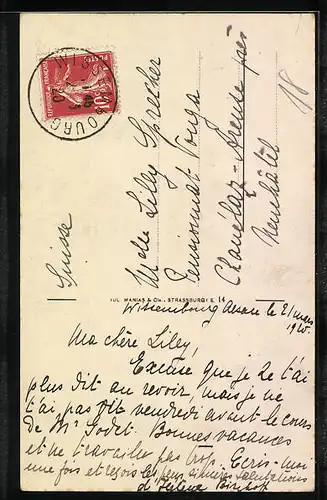 Melle Lilly Sprecher
Pensionnat Vouga
Chanélaz - Areuse près
Neuchâtel
Suisse
REPUBLIQUE FRANÇAISE
10
POSTES
18
JUL. MANIAS & Cie., STRASSBURG i. E. 14
Wissembourg le 21 mars
1920.
Ma chère Lilly,
Excuse que je ne t'ai
plus dit au revoir, mais je ne
t'ai pas vendredi avant le cours
de Mr Godet. Bonnes vacances
et ne travaille pas trop. Ecris-moi
une fois et reçois les salutations
d'Hélène